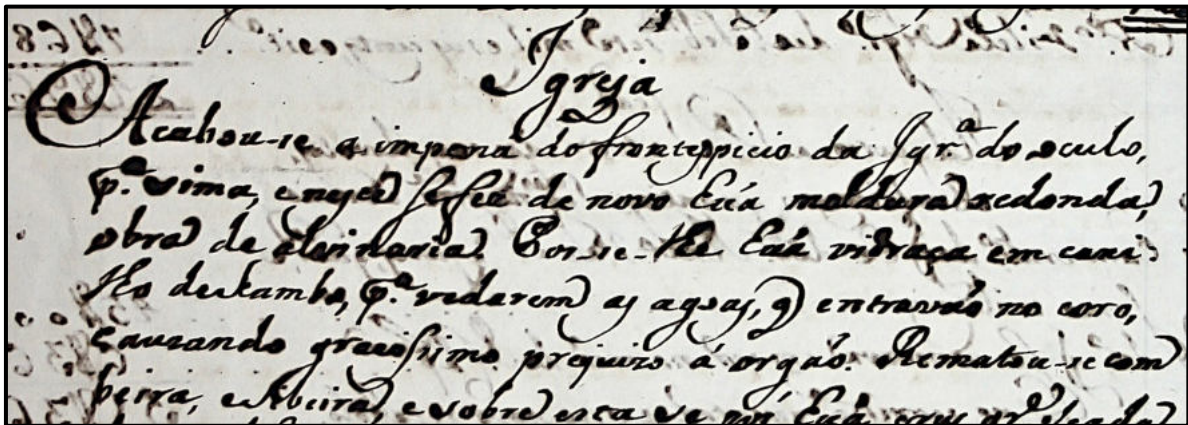 Igreja
Acabou-se a impena do frontespicio da Igr.ª do oculo,
p.ª sima, e nesce se fes de novo huá moldura redonda,
obra de alvinaria. Pos-se-lhe huá vidraça em caixi-
lho de xambo, p.ª vedarem as agoas, q entravaõ no coro,
cauzando gravissimo prejuizo á orgaõ. Rematou-se com
beira, e sibeira, e sobre esta se pos huá crus